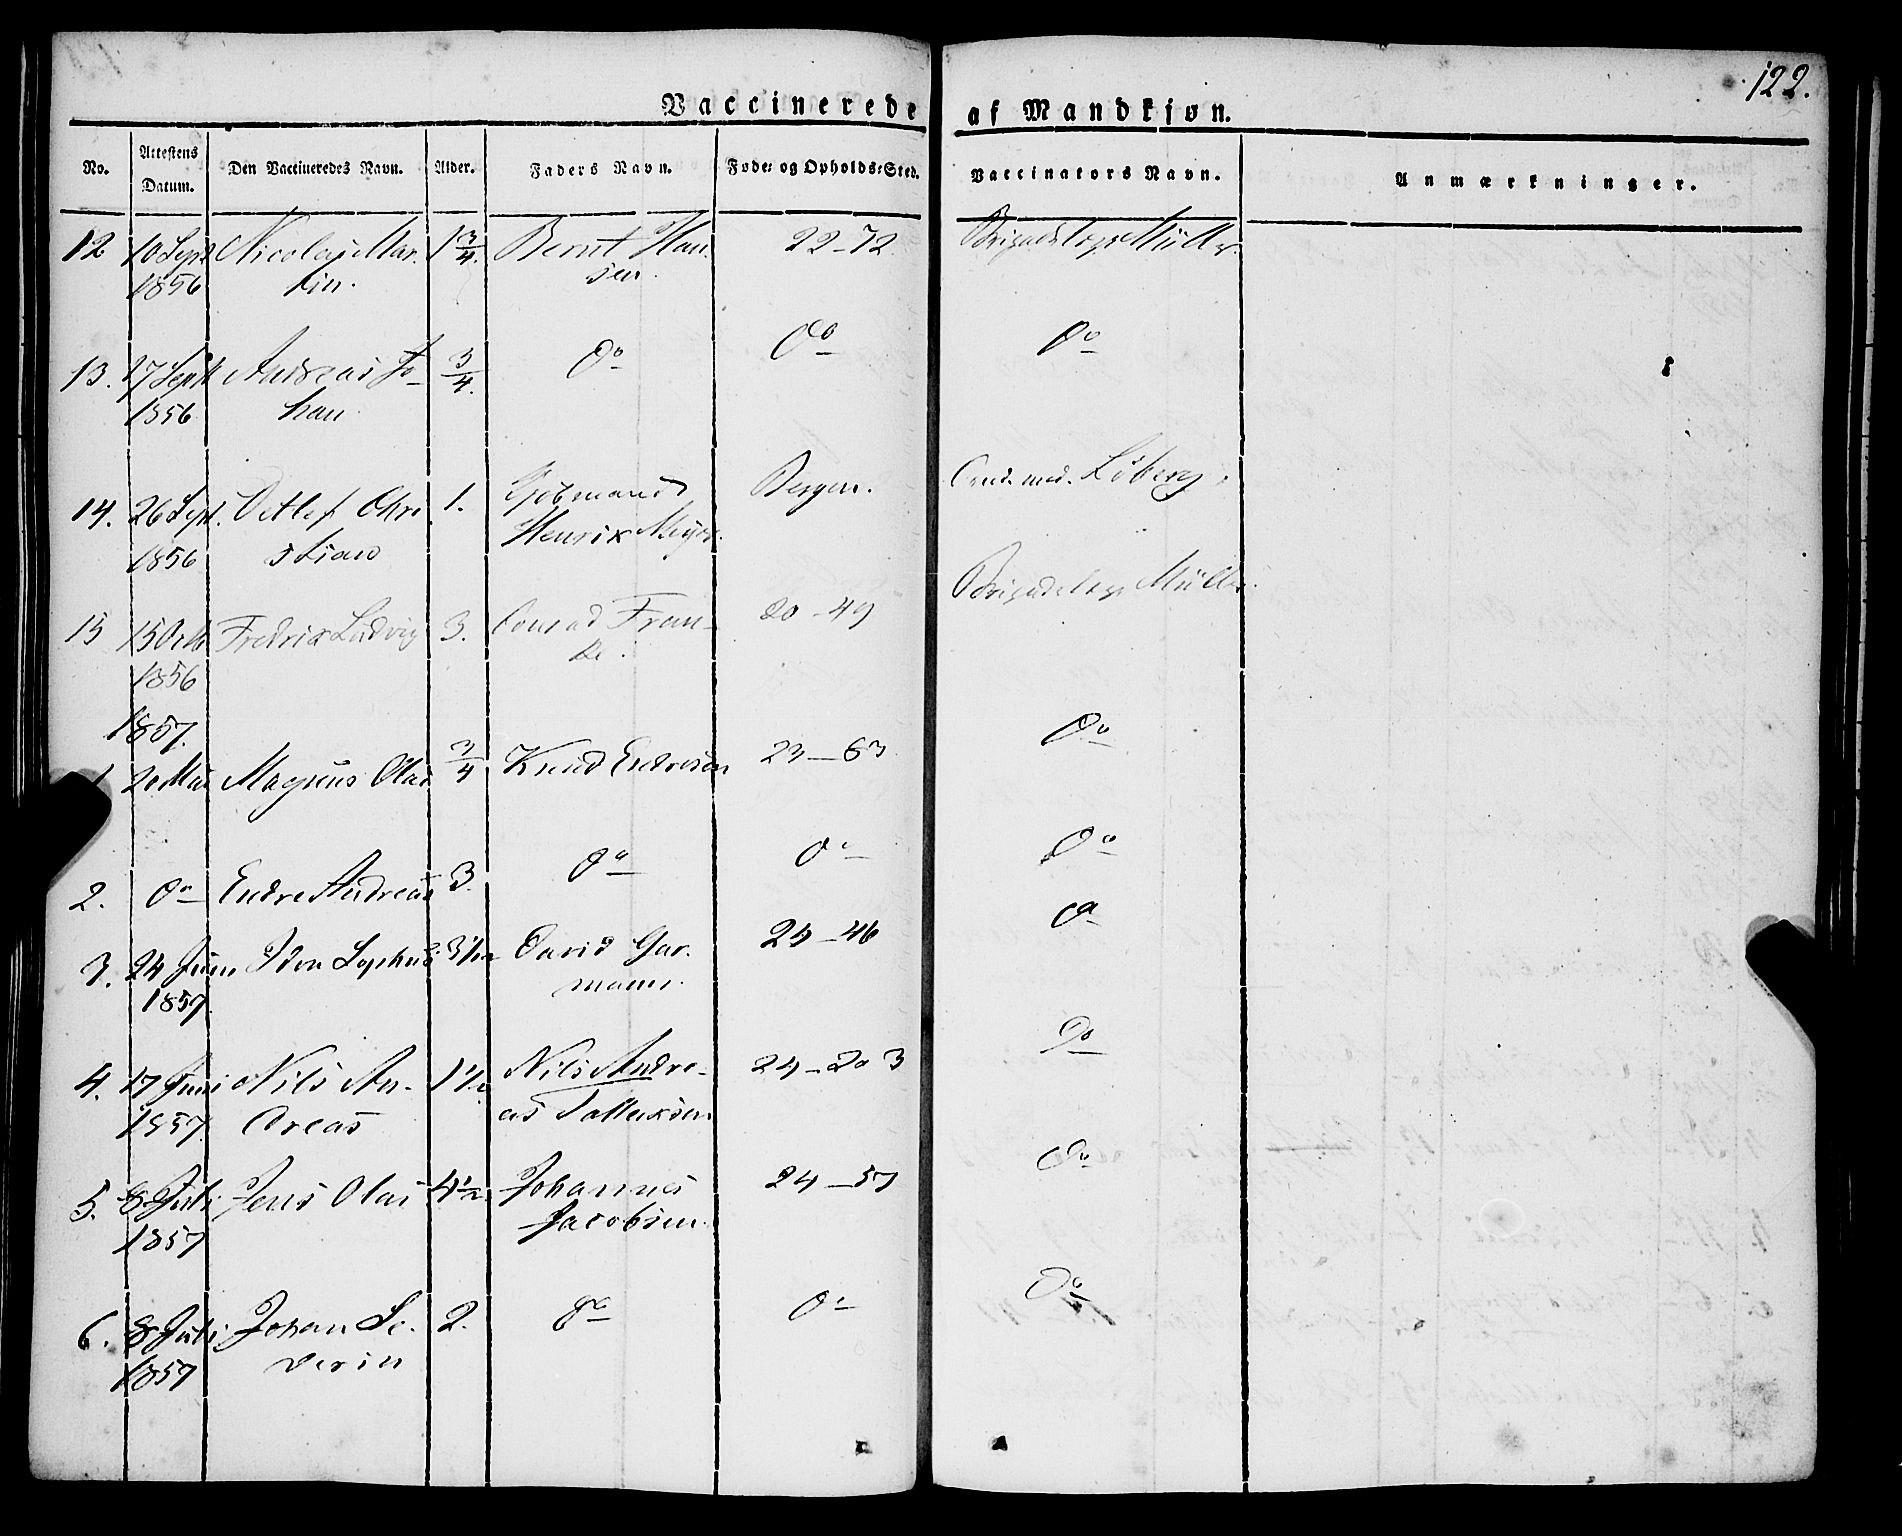 122.
Vaccinerede af Mandkjøn.
No. Attestens Datum. Den Vaccineredes Navn. Alder. Faders Navn. Føde- og Opholds-Sted. Vaccinators Navn. Anmærkninger.
12 10 Sept Nicolay Mar- 1 3/4. Bernt Han- 22-72 Brigadelæge Müller.
1856 tin. sen.
13. 17 Sept Andreas Jo- 3/4. Do Do Do
1856 han
14. 26 Sept. Detlef Chri 1. Kjøbmand Bergen. Cand. med. Löberg.
1856 stian Henrik Meyer.
15 15 Octb Fredrik Ludvig 3. Conrad Fran- 20-49 Brigadelæge Müller.
1856 ke.
1857.
1 20 Mai Magnus Olai 3/4 Knud Endresen 23-63 Do
2. Do Endre Andreas 3. Do Do Do
3. 24 Juni Sophus 3 1/2 David Gar- 24-46 Do
1857 mann.
4. 17 Juni Nils An- 1 1/2 Nils Andre- 24-203 Do
1857. dreas as Tollaksen
5. 8 Juli Jens Olai 4 1/2 Johannes 24-57 Do
1857 Jacobsen.
6. 8 Juli Johan Se- 2. Do Do Do
1857 verin